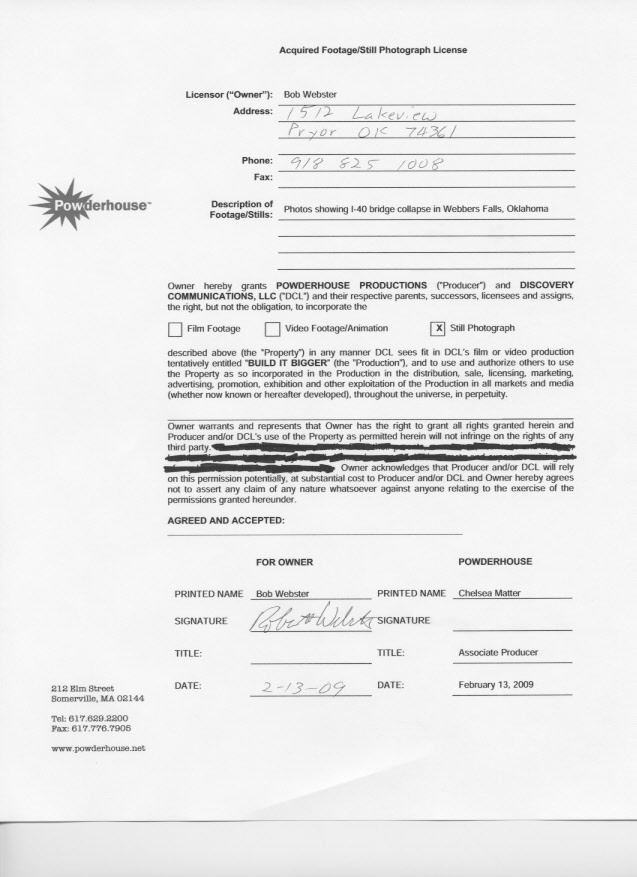 Acquired Footage/Still Photograph License
Licensor ("Owner"): Bob Webster
Address: 1512 Lakeview
Pryor OK 74361
Phone: 918 825 1008
Fax:
Powderhouse™
Description of Footage/Stills: Photos showing I-40 bridge collapse in Webbers Falls, Oklahoma
Owner hereby grants POWDERHOUSE PRODUCTIONS ("Producer") and DISCOVERY
COMMUNICATIONS, LLC ("DCL") and their respective parents, successors, licensees and assigns,
the right, but not the obligation, to incorporate the
Film Footage Video Footage/Animation X Still Photograph
described above (the "Property") in any manner DCL sees fit in DCL's film or video production
tentatively entitled "BUILD IT BIGGER" (the "Production"), and to use and authorize others to use
the Property as so incorporated in the Production in the distribution, sale, licensing, marketing,
advertising, promotion, exhibition and other exploitation of the Production in all markets and media
(whether now known or hereafter developed), throughout the universe, in perpetuity.
Owner warrants and represents that Owner has the right to grant all rights granted herein and
Producer and/or DCL's use of the Property as permitted herein will not infringe on the rights of any
third party.
Owner acknowledges that Producer and/or DCL will rely
on this permission potentially, at substantial cost to Producer and/or DCL and Owner hereby agrees
not to assert any claim of any nature whatsoever against anyone relating to the exercise of the
permissions granted hereunder.
AGREED AND ACCEPTED:
FOR OWNER POWDERHOUSE
PRINTED NAME Bob Webster PRINTED NAME Chelsea Matter
SIGNATURE Robert Webster SIGNATURE
TITLE: TITLE: Associate Producer
DATE: 2-13-09 DATE: February 13, 2009
212 Elm Street
Somerville, MA 02144
Tel: 617.629.2200
Fax: 617.776.7905
www.powderhouse.net